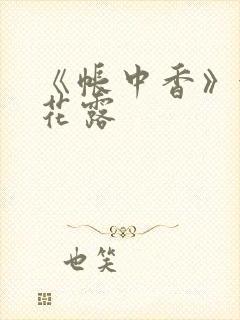 《帐中香》
花露
也笑